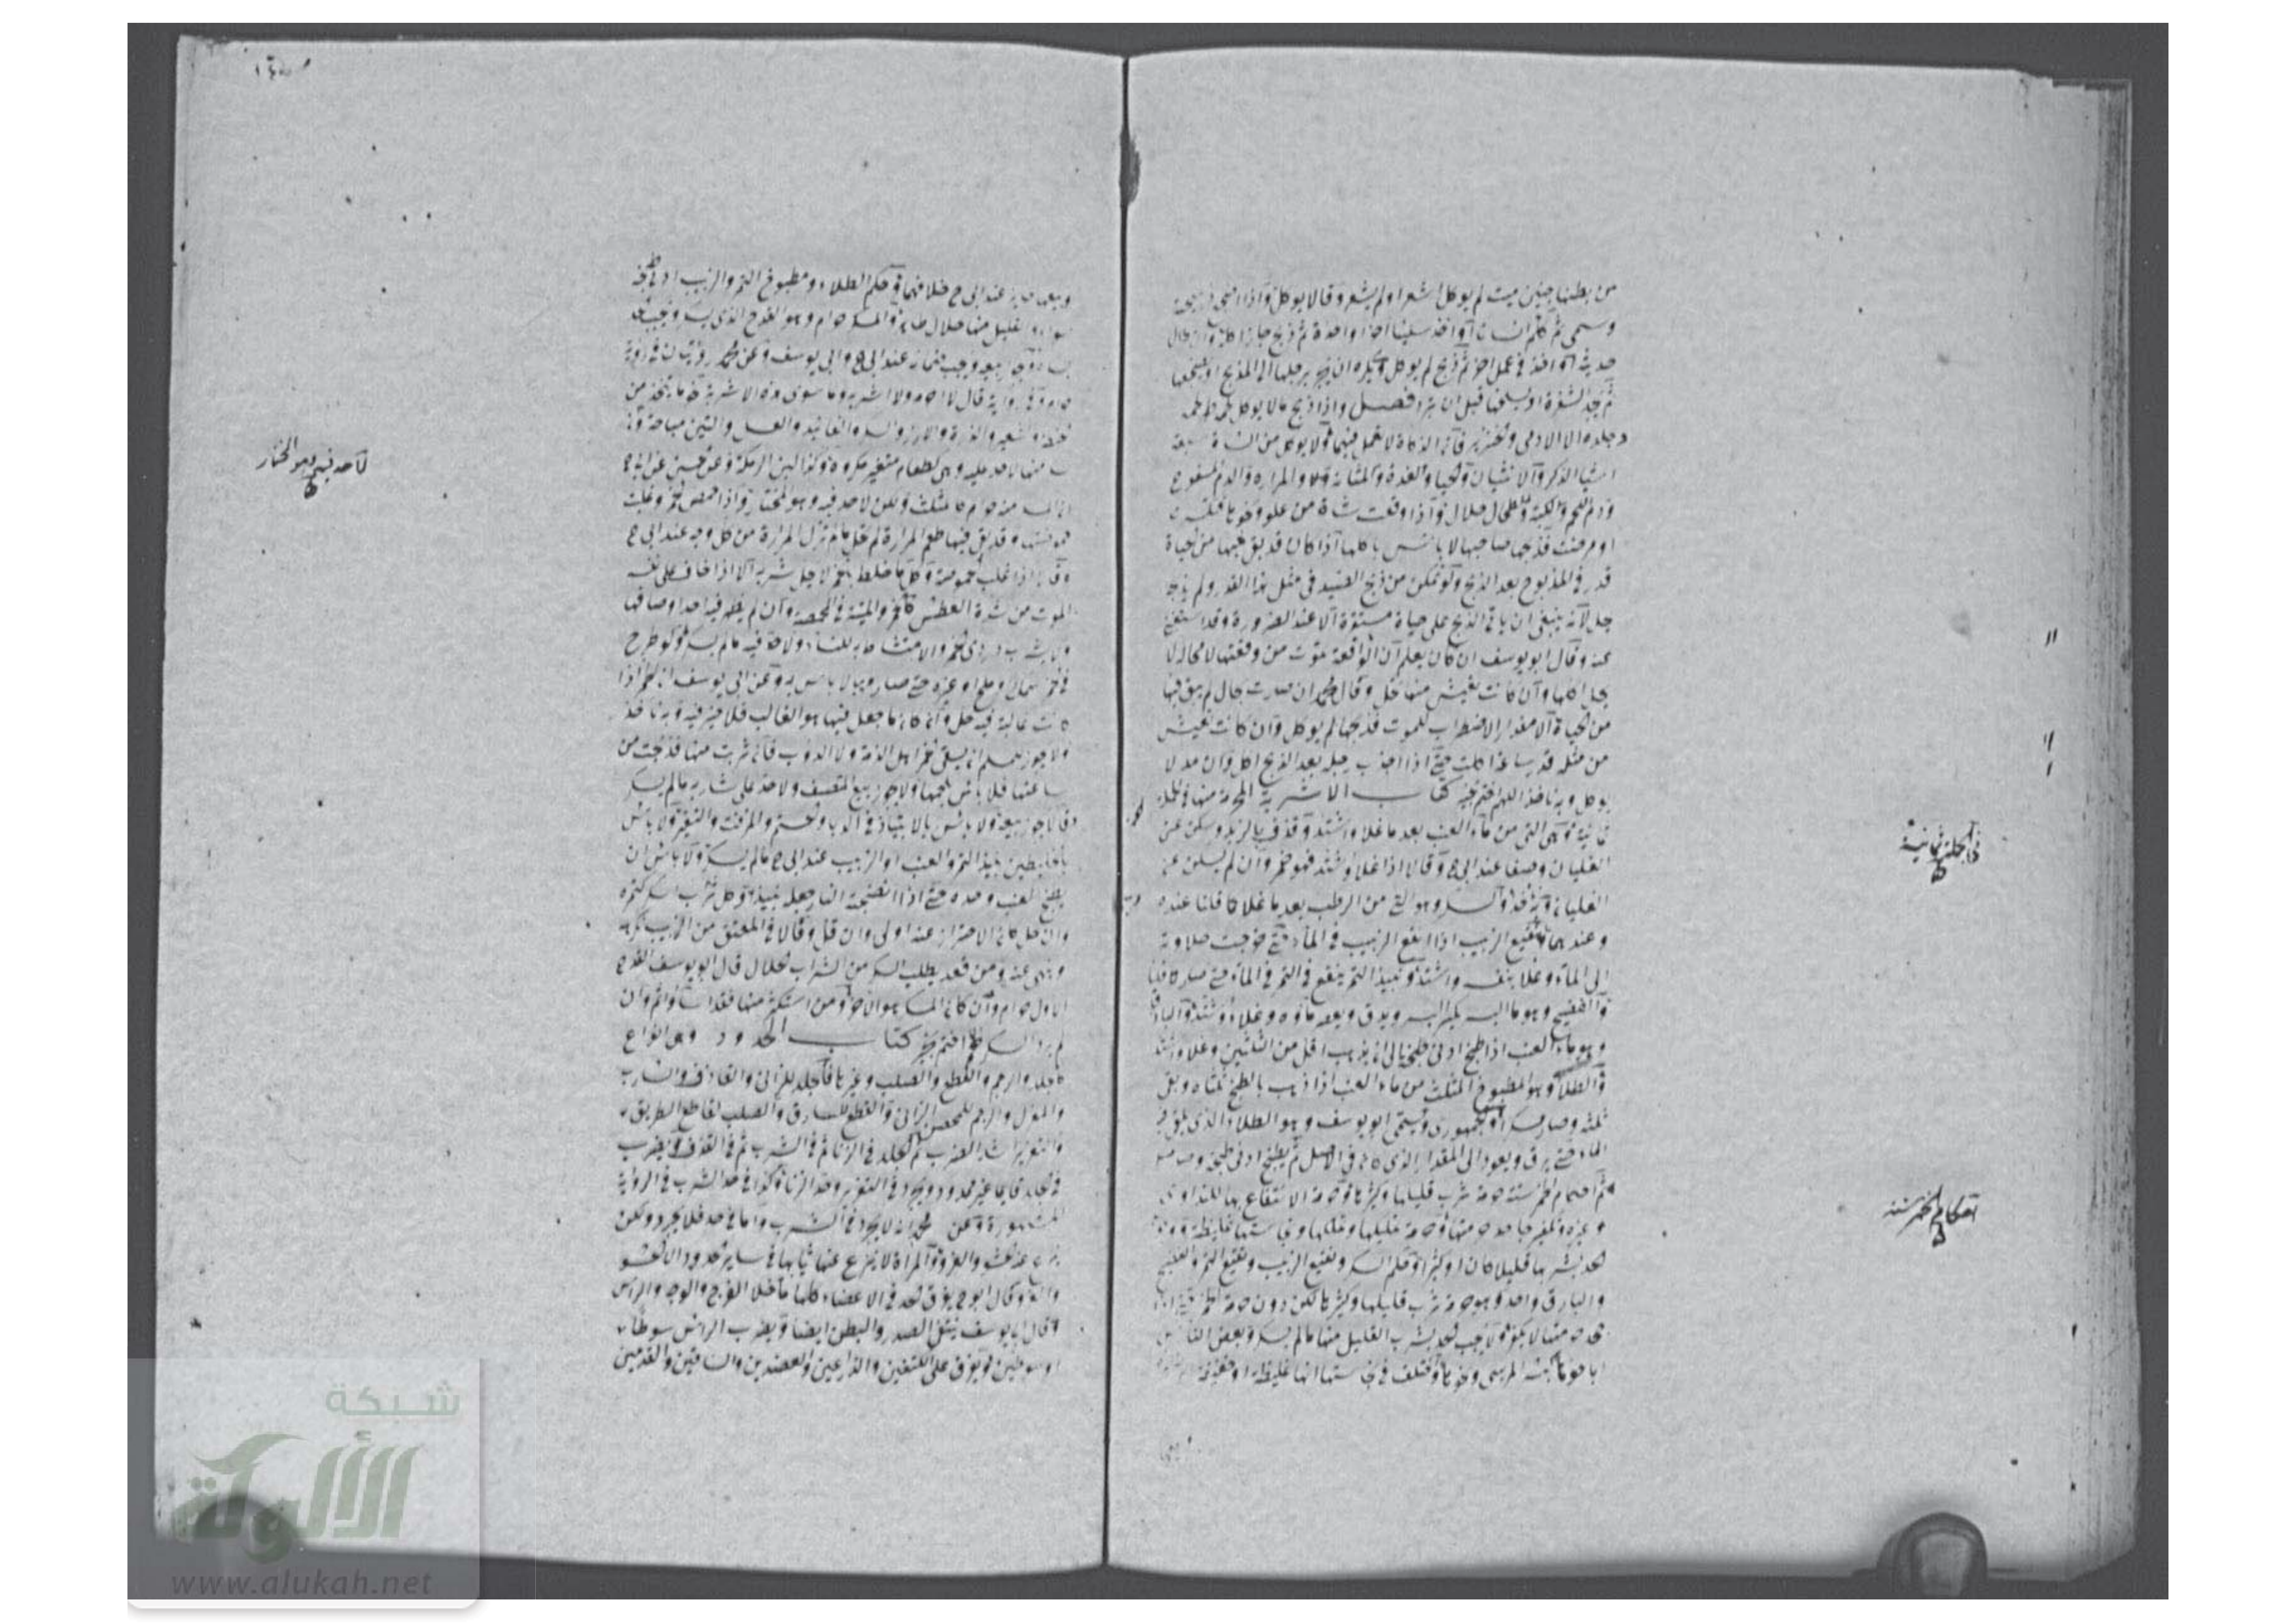 من بطنها جنين ميت لم يوكل اشعر او لم يشعر وقالا يوكل واذا
وسمى ثم كلم انسانا او اخذ سكينا اخرا واحدة ثم ذبح جاز اكله وان طال
حديثه او اخذ في عمل اخر ثم ذبح لم يوكل ويكره ان يجر برجلها الى المذبح او يضجعها
ثم يحد الشفرة او يسلخها قبل ان تبرد فصل واذا ذبح ما لا يوكل لحمه طهر لحمه
وجلده الا الادمي والخنزير فان الذكاة لا تعمل فيهما ولا يوكل من الشاة سبعة
اشيا الذكر والانثيان والحيا والغدة والمثانة والمرارة والدم المسفوح
ودم اللحم والكبد والطحال حلال واذا وقعت شاة من علو ونحوها
او مرضت فذبحها صاحبها لا باس باكلها اذا كان قد بقي فيها من الحياة
قدر في المذبوح بعد الذبح ولو تمكن من ذبح الصيد في مثل هذا القدر ولم يذبح
حل لانه ينبغي ان ياتي الذبح على حياة مستقرة الا عند الضرورة وقد استغنى
عنه وقال ابو يوسف ان كان يعلم ان الواقعة تموت من وقعتها لا محالة لا
يحل اكلها وان كانت تعيش منها تحل وقال محمد ان صارت بحال لم يبق فيها
من الحياة الا مقدار الاضطراب للموت فذبحها لم يوكل وان كانت تعيش
من مثله قدر ساعة اكلت حتى اذا اجذب رجله بعد الذبح اكل وان مد لا
يوكل وبه ناخذ اللهم اختم بخير كتاب الاشربة المحرمة منها في الجملة
ثمانية وهي التي من ماء العنب بعد ما غلا واشتد وقذف بالزبد وسكن عن
الغليان وصفا عند ابي ح وقالا اذا غلا واشتد فهو خمر وان لم يسكن عن
الغليان وبه ناخذ والسكر وهو التي من الرطب بعد ما غلا كما قلنا عنده
وعندهما ونقيع الزبيب اذا انقع الزبيب في الماء حتى خرجت حلاوته
الى الماء وغلا بنفسه واشتد ونبيذ التمر ينقع في التمر في الماء حتى صار كما قلنا
والفضيخ وهو ماء البسر يكسر البسر ويدق ويعصر ماؤه وغلا واشتد والباذق
وهو ماء العنب اذا طبخ ادنى طبخة الى ان يذهب اقل من الثلثين وغلا واشتد
والطلاء وهو المطبوخ المثلث من ماء العنب اذا ذهب بالطبخ ثلثاه وبقي
ثلثه وصار مسكرا والجمهوري ويسمى ابو يوسفي وهو الطلاء الذي يلقى فيه
الماء حتى يرق ويعود الى المقدار الذي كان في الاصل ثم يطبخ ادنى طبخة
ثم احكام الخمر ستة حرمة شرب قليلها وكثيرها وحرمة الانتفاع بها للتداوي
وغيره ويكفر جاحد حرمتها وحرمة تمليكها وتملكها ونجاستها غليظة
الحد بشربها قليلا كان او كثيرا وحكم السكر ونقيع الزبيب ونقيع التمر والفضيخ
والباذق واحد وهو حرمة شرب قليلها وكثيرها لكن دون حرمة الخمر حتى ان
حرمتها لا يكفر ولا يجب الحد بشرب القليل منها ما لم يسكر وبعض الناس
اباحوها كبشر المريسي ونحوها واختلف في نجاستها انها غليظة او خفيفة
في الجملة ثمانية
احكام الخمر ستة
وبيعها جايز عند ابي ح خلافهما في حكم الطلاء ومطبوخ التمر والزبيب ادنى طبخة
القليل منها حلال طاهر والمسكر حرام وهو القدح الذي يسكر
ويجوز بيعه ويجب ضمانه عند ابي ح وابي يوسف وعن محمد روايتان في رواية
حرام وفي رواية قال لا احرمه ولا اشربه وما سوى هذه الاشربة كما يتخذ من
الحنطة والشعير والذرة والارز والسكر والفانيد والعسل والتين مباحة
منها لا حد عليه وهي كطعام متغير مكروه وكذا لبن الرمكة وعن الحسن عن ابي ح
ان السكر منه حرام كالمثلث ولكن لا حد فيه وهو المختار واذا حمض الخمر وغلبت
حموضتها وقد بقي فيها طعم المرارة لم تحل ما لم تزل المرارة من كل وجه عند ابي ح
وقالا اذا غلب الحموضة وكل ما خلط بخمر لا يحل شربه الا اذا خاف على نفسه
الموت من شدة العطش كالخمر والميتة في المخمصة وان لم يظهر فيه احد اوصافها
ويكره شرب دردي الخمر والامتشاط به للنساء ولا حد فيه ما لم يسكر ولو طرح
في خمر سمك وملح او غيره حتى صار مريا لا باس به وعن ابي يوسف ان الخمر اذا
كانت غالبة فيه حل وان كان ما جعل فيها هو الغالب فلا خير فيه وبه ناخذ
ولا يجوز للمسلم ان يسقي خمرا اهل الذمة ولا الدواب فان شربت منها فذبحت من
ساعتها فلا باس بلحمها ولا يجوز بيع المنصف ولا حد على شاربه ما لم يسكر
وقالا يجوز بيعه ولا باس بالانتباذ في الدباء والحنتم والمزفت والنقير ولا باس
بالخليطين نبيذ التمر والعنب او الزبيب عند ابي ح ما لم يسكر ولا باس ان
يطبخ العنب وحده حتى اذا انضجته النار جعله نبيذا وكل شراب اسكر كثيره
وان حل كان الاحتراز عنه اولى وان قل وقالا في المعتق من الزبيب يكره
ونهى عنه ومن قعد يطلب السكر من الشراب الحلال قال ابو يوسف القدح
الاول حرام وان كان المسكر هو الاخر ومن استكثر منها فقد اساء واثم وان
لم يرد السكر اللهم اختم بخير كتاب الحدود وهي انواع
كالجلد والرجم والقطع والصلب وغيرها فالجلد للزاني والقاذف والشارب
والرجم للمحصن الزاني والقطع للسارق والصلب لقاطع الطريق
والتعزير اشد الضرب ثم الجلد في الزنا ثم في الشرب ثم في القذف ويضرب
في الجلد قايما غير ممدود ويجرد في التعزير وحد الزنا وكذا في حد الشرب في الرواية
المشهورة وعن محمد انه لا يجرد في الشرب واما في حد القذف فلا يجرد ولكن
ينزع عنه الحشو والفرو والمراة لا ينزع عنها ثيابها في ساير الحدود الا الحشو
والفرو وقال ابو ح يفرق الحد في الاعضاء كلها ما خلا الفرج والوجه والراس
وقال ابو يوسف يتقي الصدر والبطن ايضا ويضرب الراس سوطا
او سوطين ويفرق على الكتفين والذراعين والعضدين والساقين والقدمين
لا حد فيه وهو المختار
شبكة
الألوكة
www.alukah.net